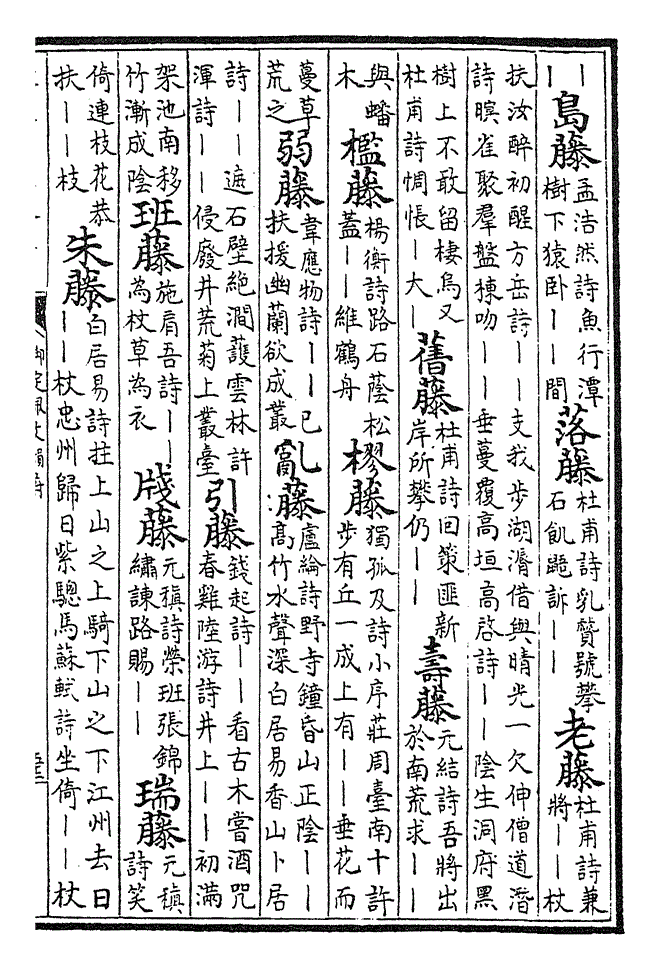 ｜｜島藤孟浩然詩魚行潭樹下猿卧｜｜間落藤杜甫詩乳贙號攀石飢鼯訴｜｜老藤杜甫詩兼將｜｜杖
扶汝醉初醒方岳詩｜｜支我步湖漘借與晴光一欠伸僧道潛
詩暝雀聚羣盤棟吻｜｜垂蔓覆高垣高啓詩｜｜陰生洞府黑
樹上不敢留棲烏又杜甫詩惆悵｜大｜舊藤杜甫詩回策匪新岸所攀仍｜｜壽藤元結詩吾將出於南荒求｜｜
與蟠木檻藤楊衡詩路石蔭松蓋｜｜維鶴舟樛藤獨孤及詩小序莊周臺南十許步有丘一成上有｜｜垂花而
蔓草荒之弱藤韋應物詩｜｜已扶援幽蘭欲成叢亂藤盧綸詩野寺鐘昏山正陰｜｜高竹水聲深白居易香山卜居
詩｜｜遮石壁絶澗護雲林許渾詩｜｜侵廢井荒菊上叢臺引藤錢起詩｜｜看古木嘗酒咒春雞陸游詩井上｜｜初滿
架池南移竹漸成陰班藤施肩吾詩｜｜為杖草為衣牋藤元稹詩縈班張錦繡諫路賜｜｜瑞藤元稹詩笑
倚連枝花恭扶｜｜枝朱藤白居易詩拄上山之上騎下山之下江州去日｜｜杖忠州歸日紫驄馬蘇軾詩坐倚｜｜杖